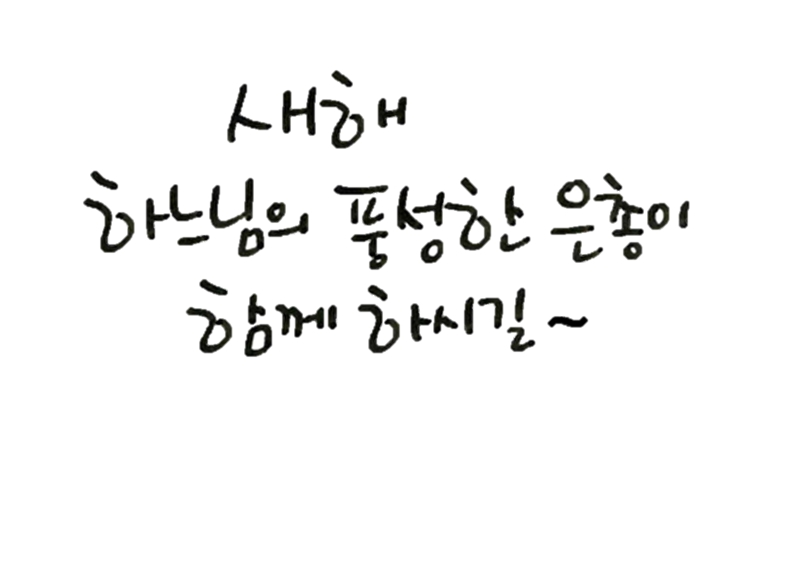 새해
하느님의 풍성한 은총이
함께 하시길~